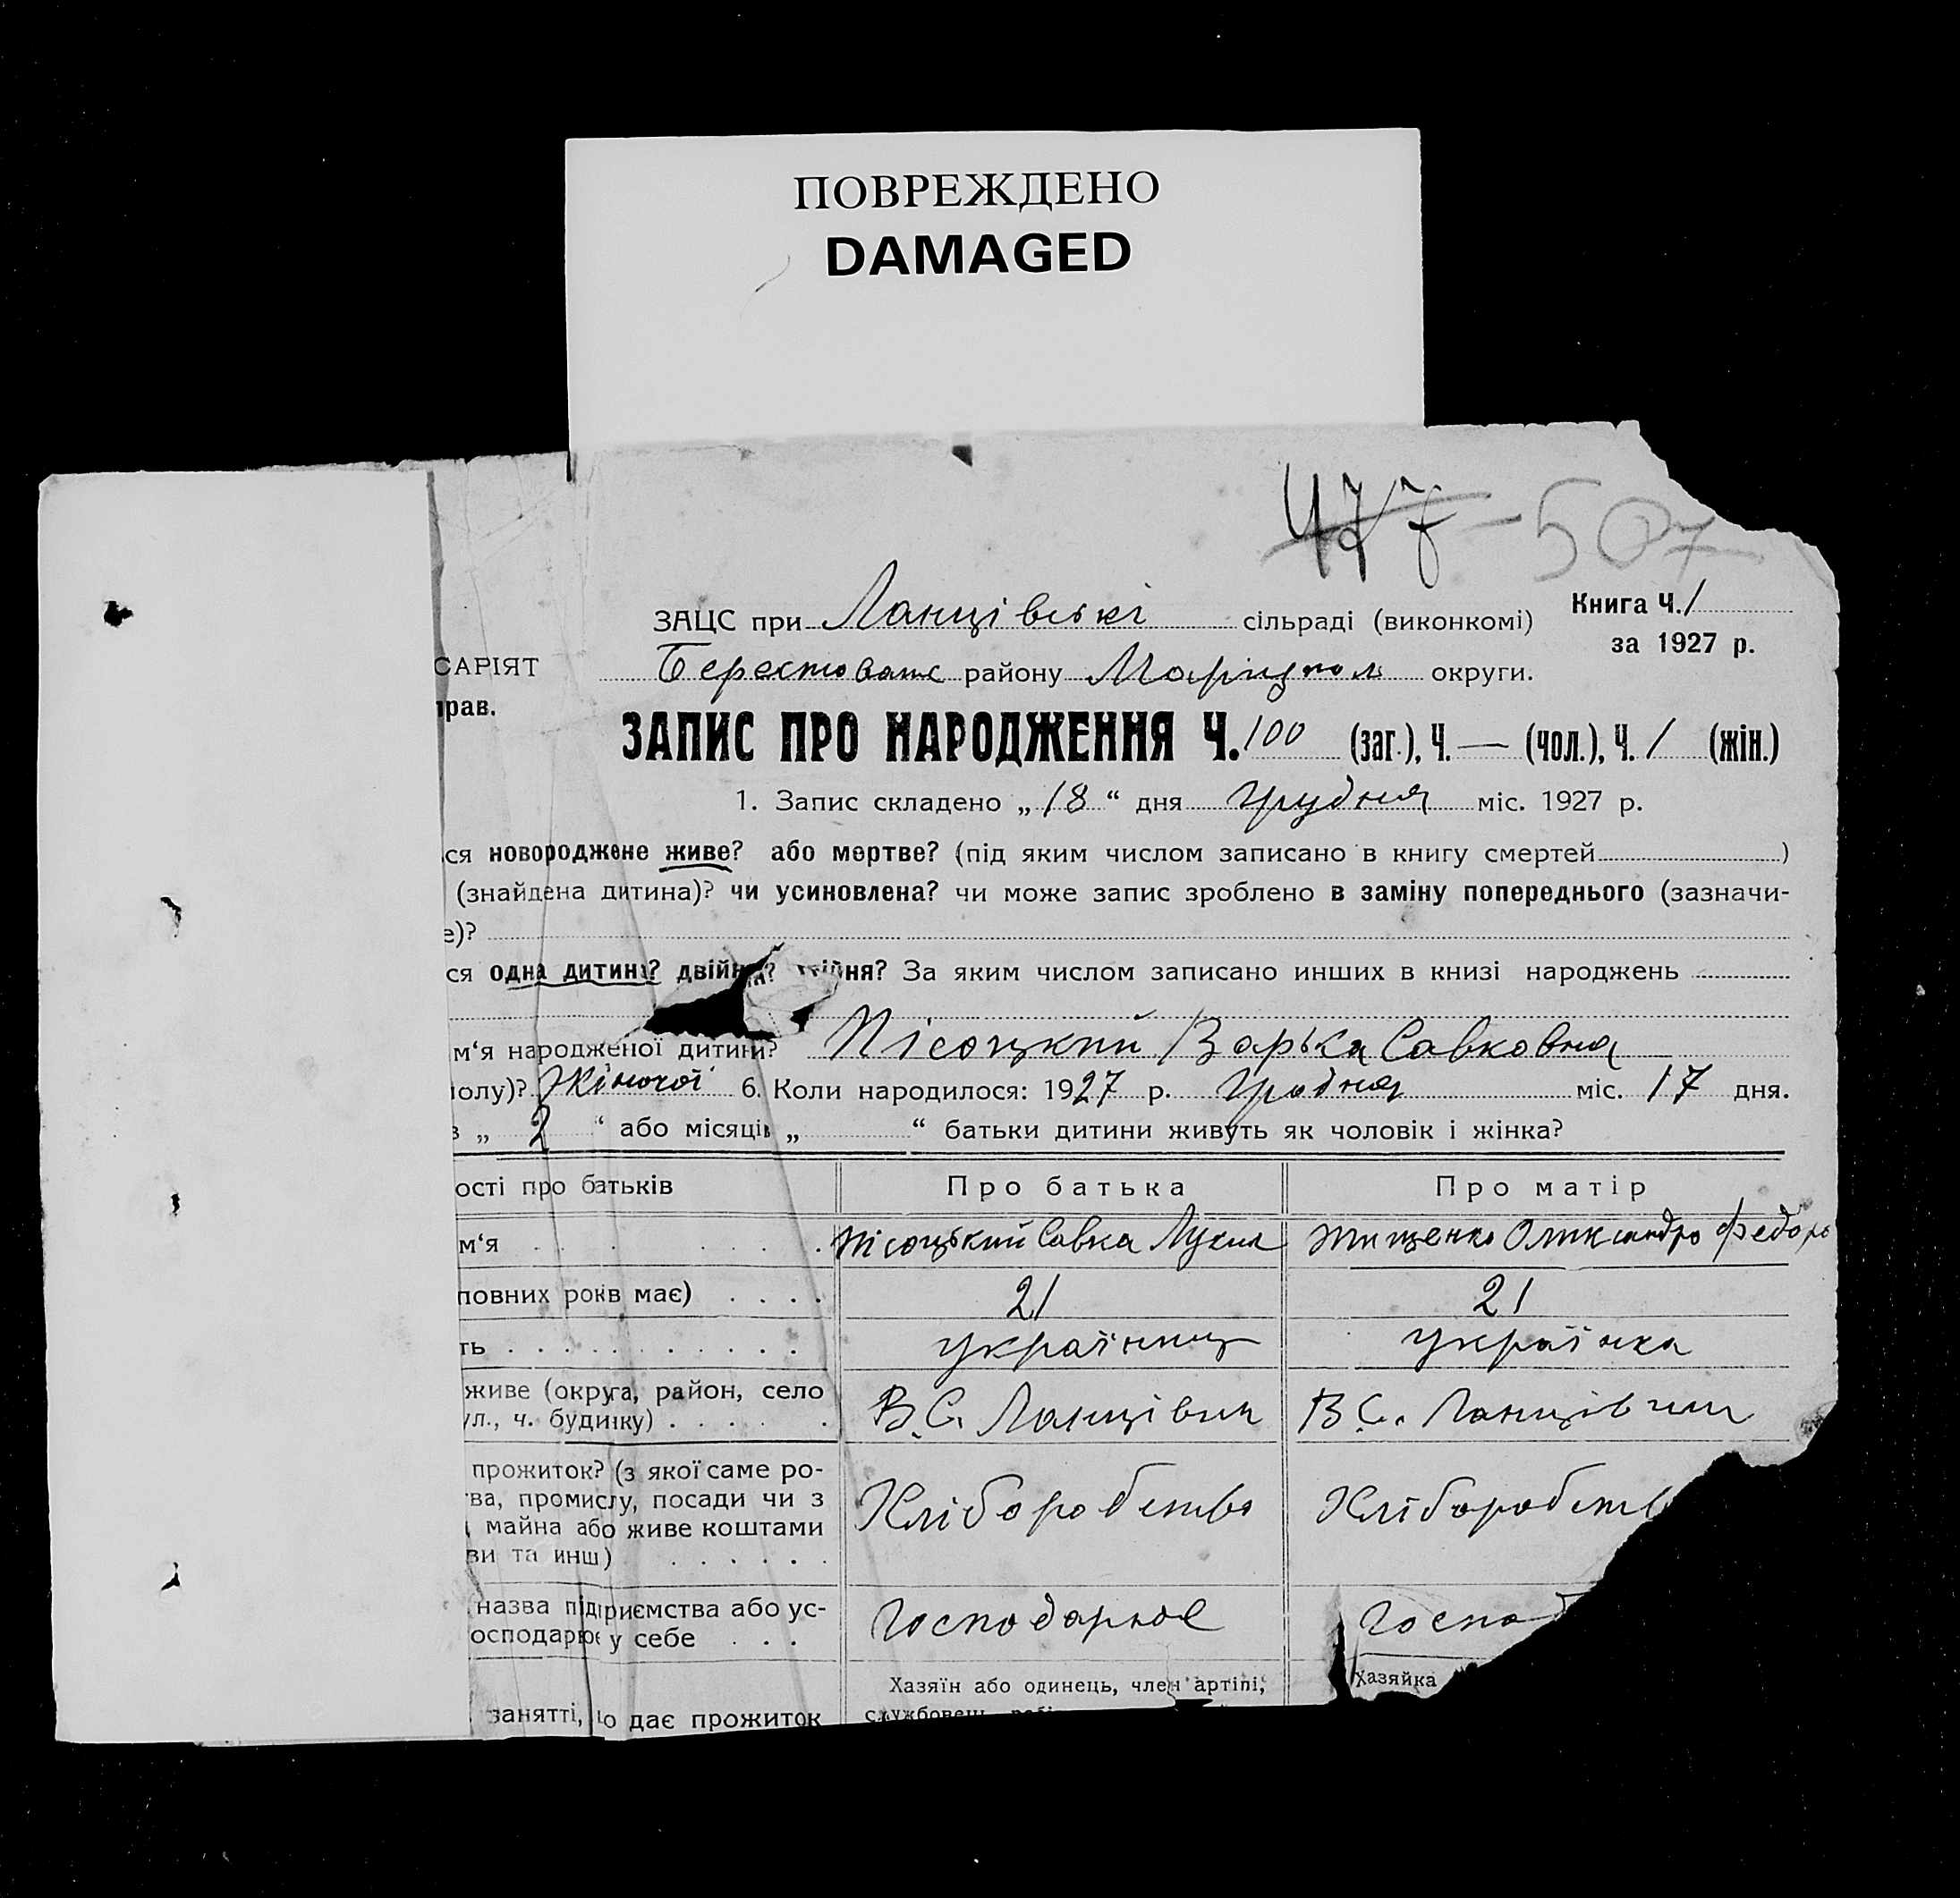 ПОВРЕЖДЕНО
DAMAGED
477 - 507
Книга Ч. 1
ЗАЦС при Ланцівські сільраді (виконкомі)
за 1927 р.
САРІЯТ
Берестован району Маріупол округи.
прав.
ЗАПИС ПРО НАРОДЖЕННЯ Ч. 100 (заг.), Ч. — (чол.), Ч. 1 (жін.)
1. Запис складено „ 18 “ дня Грудня міс. 1927 р.
ся новороджене живе? або мертве? (під яким числом записано в книгу смертей )
(знайдена дитина)? чи усиновлена? чи може запис зроблено в заміну попереднього (зазначи-
е)?
ся одна дитина? двійня? трійня? За яким числом записано инших в книзі народжень
м‘я народженої дитини? Пісоцкий Варька Савковна
полу)? Жіночої 6. Коли народилося: 1927 р. Грудня міс. 17 дня.
в „ 2 “ або місяців „ “ батьки дитини живуть як чоловік і жінка?
ості про батьків Про батька Про матір
м‘я Пісоцький Савка Лукич Тищенко Олександро Федоро
повних років має) 21 21
ть українец українка
живе (округа, район, село
ул., ч. будинку) В.С. Ланцівки В.С. Ланцівки
прожиток? (з якої саме ро-
тва, промислу, посади чи з
майна або живе коштами
ви та инш) Хліборобство Хліборобств
назва підприємства або ус-
осподарює у себе Господарное Господ
Хазяїн або одинець, член артілі, Хазяйка
занятті, що дає прожиток службовець